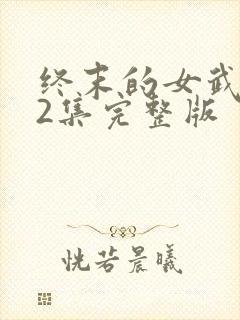 终末的女武
2集完整版
恍若晨曦